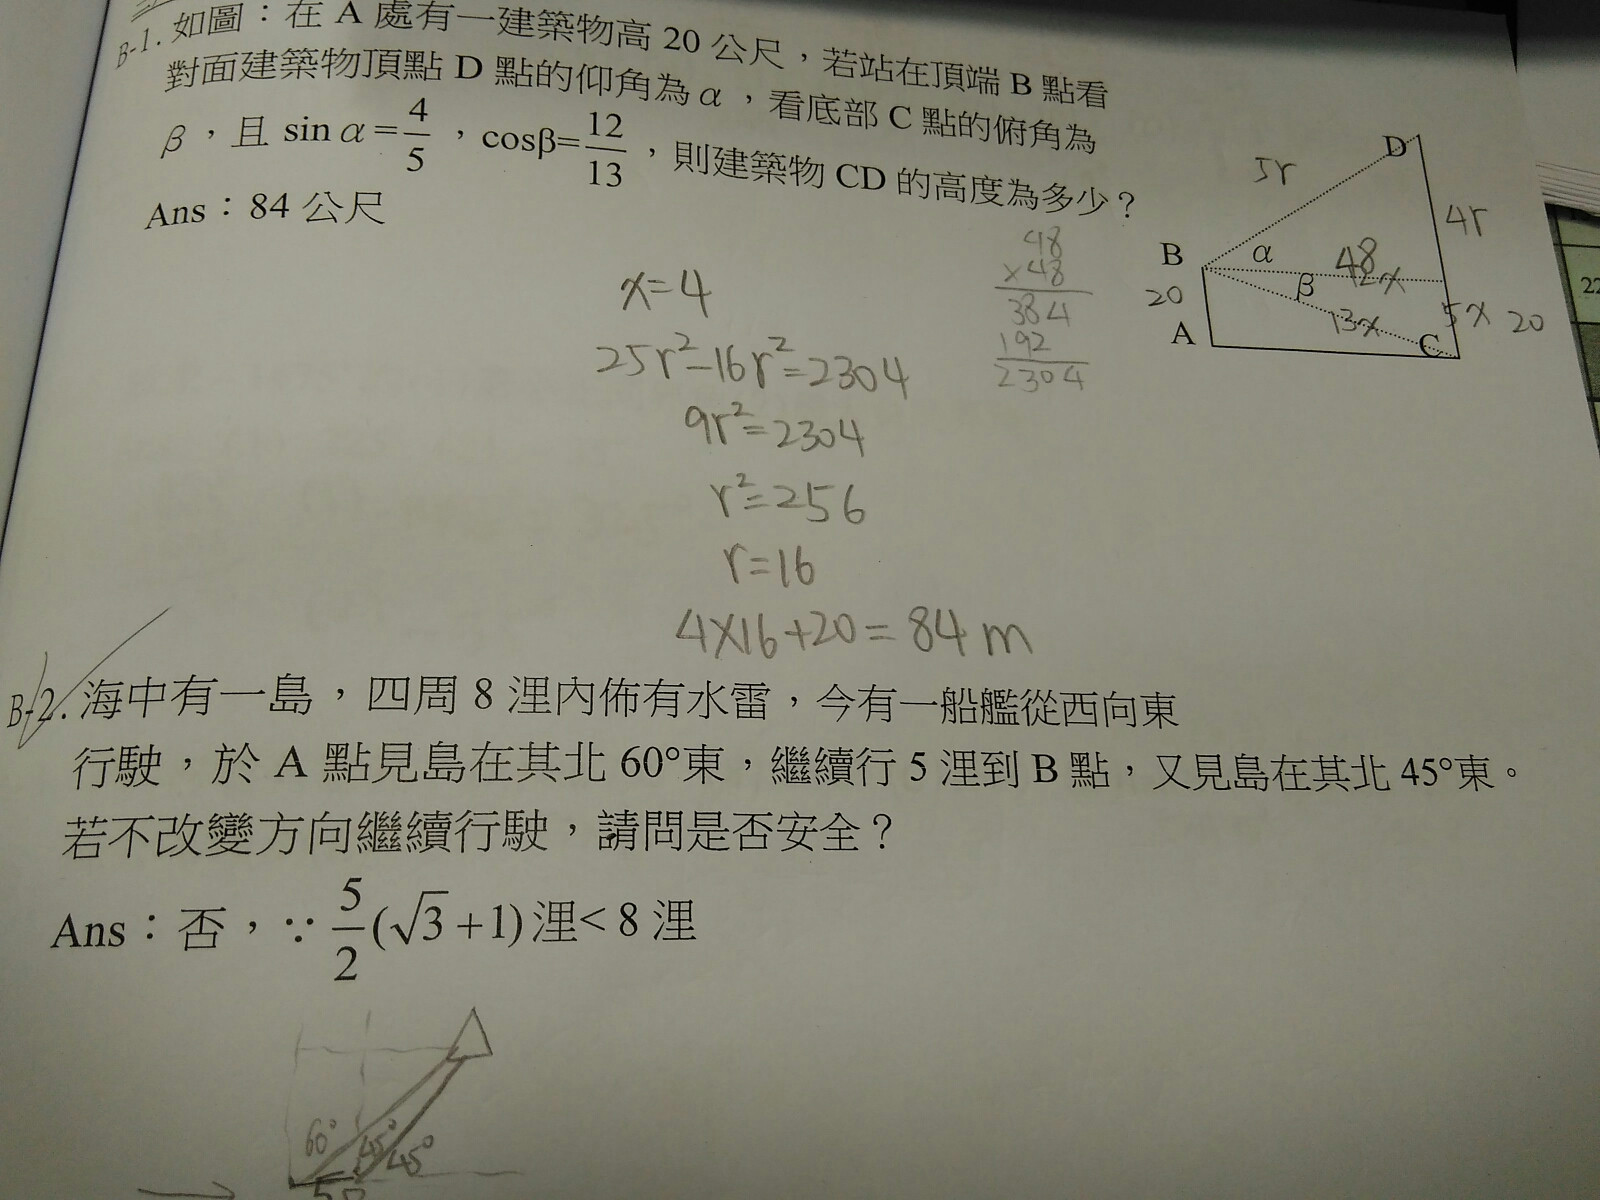 B-1. 如圖：在 A 處有一建築物高 20 公尺，若站在頂端 B 點看
對面建築物頂點 D 點的仰角為 α，看底部 C 點的俯角為
β，且 sin α = 4/5，cosβ= 12/13，則建築物 CD 的高度為多少？
Ans：84 公尺
D
5r
4r
B
α
48
12x
β
20
13x
5x 20
A
C
48
×48
384
192
2304
x=4
25r²-16r²=2304
9r²=2304
r²=256
r=16
4×16+20=84 m
B-2. 海中有一島，四周 8 浬內佈有水雷，今有一船艦從西向東
行駛，於 A 點見島在其北 60°東，繼續行 5 浬到 B 點，又見島在其北 45°東。
若不改變方向繼續行駛，請問是否安全？
Ans：否，∵ 5/2 (√3 +1) 浬< 8 浬
60°
45°
45°
22